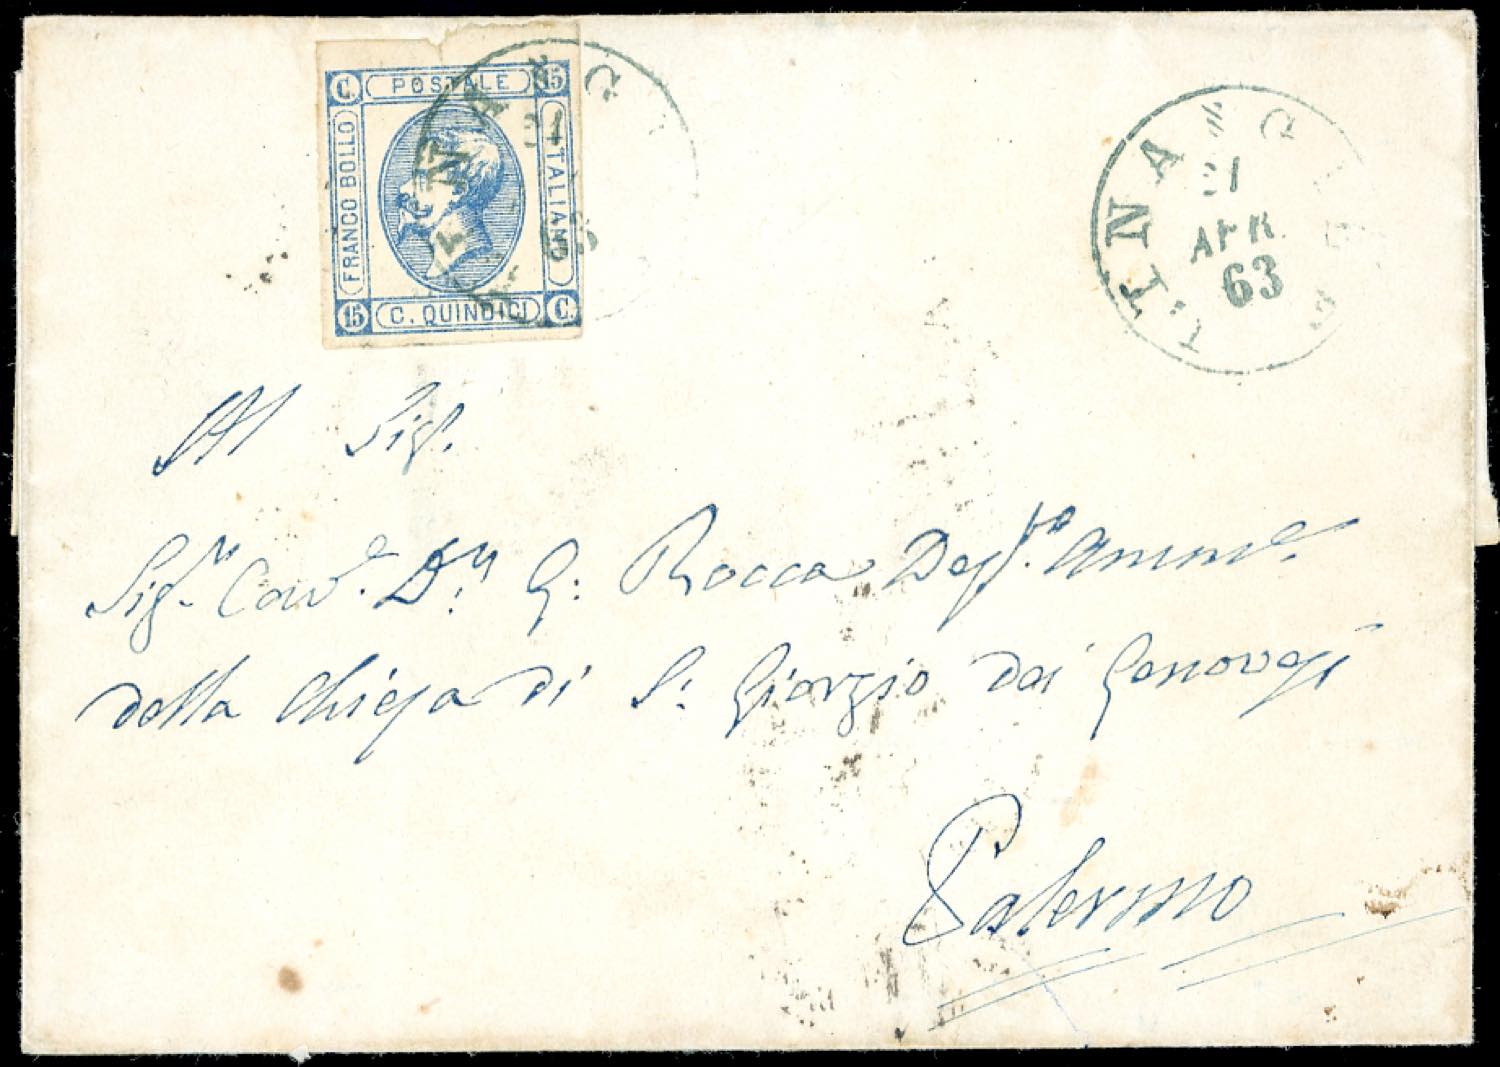 C. POSTALE 15
FRANCO BOLLO
ITALIANO
15 C. QUINDICI C.
21
APR
63
Al Sig.
Sig.r Cav.e D.n G. Rocca
della Chiesa di S. Giorgio dei Genovesi
Palermo